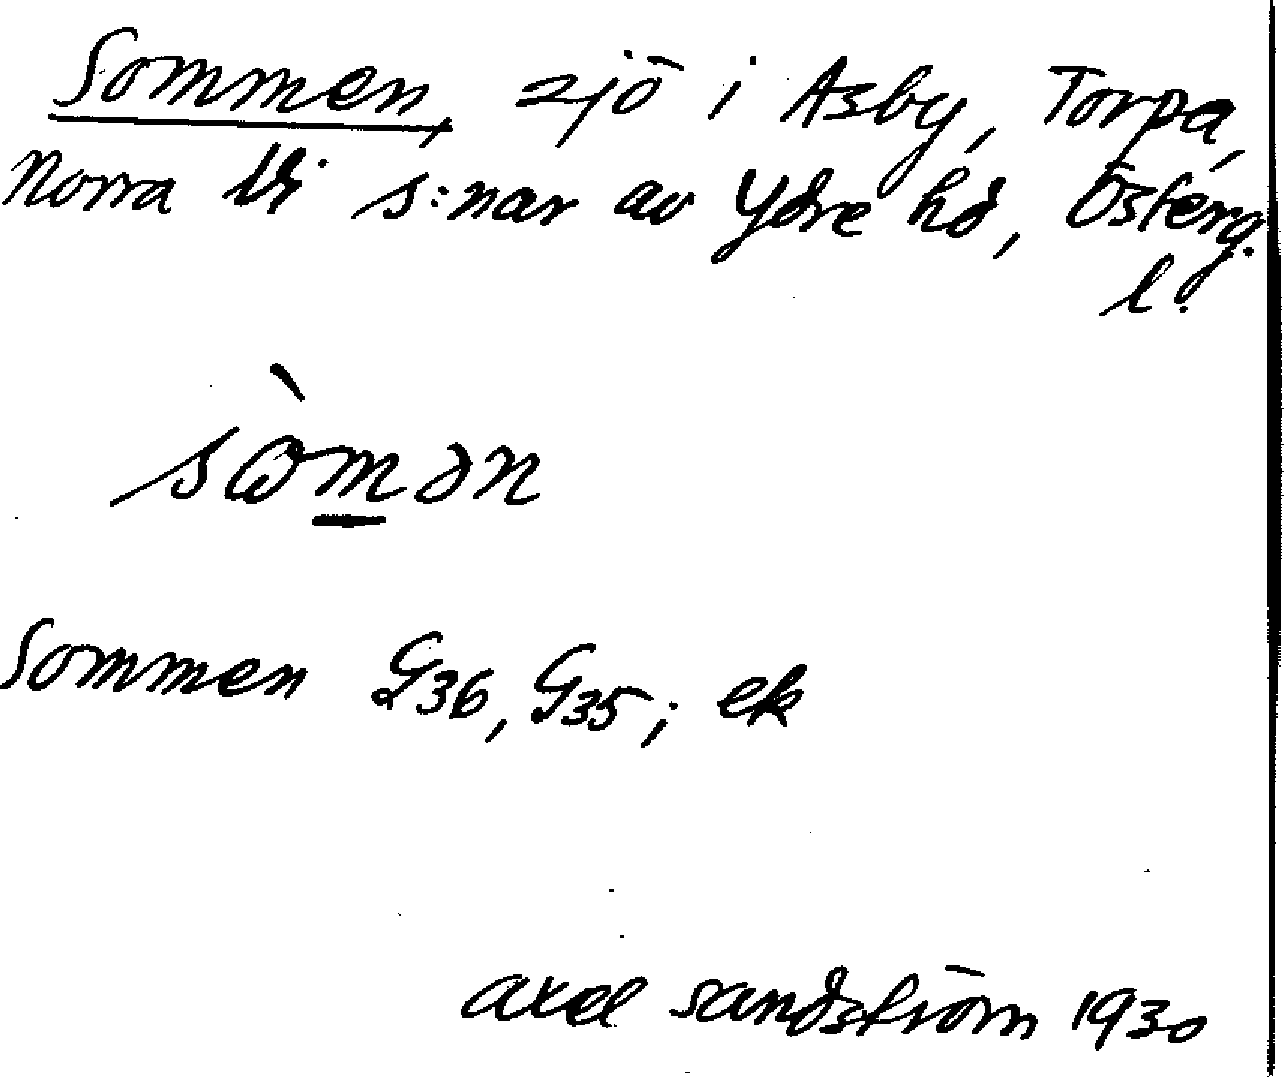 Sommen, sjö i Asby, Torpa,
Norra Vi s:nar av Ydre hd, Österg.
l.
sὼmən
Sommen G36, G35; ek
axel sandström 1930